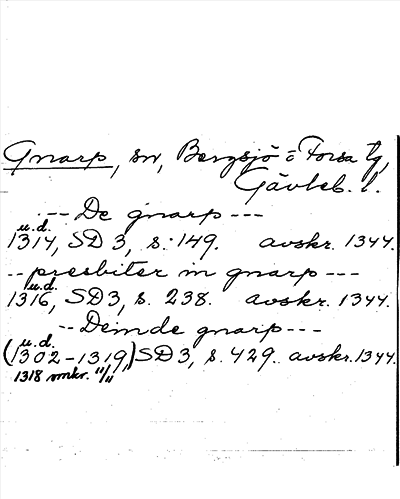 Gnarp, sn, Bergsjö o Forsa tg,
Gävleb. l.
--- De gnarp ---
u.d.
1314, SD 3, s. 149. avskr. 1344.
-- presbiter in gnarp ---
u.d.
1316, SD 3, s. 238. avskr. 1344.
-- Deinde gnarp ---
u.d.
(1302-1319,) SD 3, s. 429. avskr. 1344.
1318 omkr. "/"